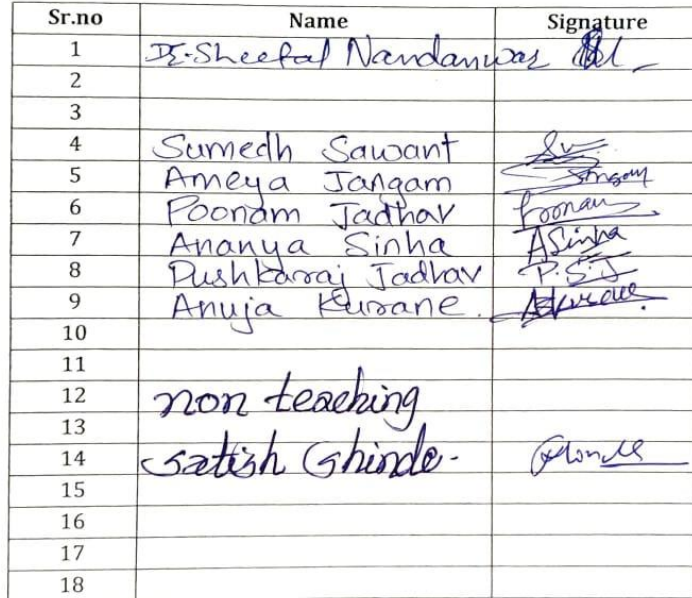 Sr.no Name Signature
1 Dr. Sheetal Nandanwar
2
3
4 Sumedh Sawant
5 Ameya Jangam Jangam
6 Poonam Jadhav Poonam
7 Ananya Sinha ASinha
8 Pushkaraj Jadhav P.S.J
9 Anuja Kurane.
10
11
12 non teaching
13
14 Satish Ghinde-
15
16
17
18